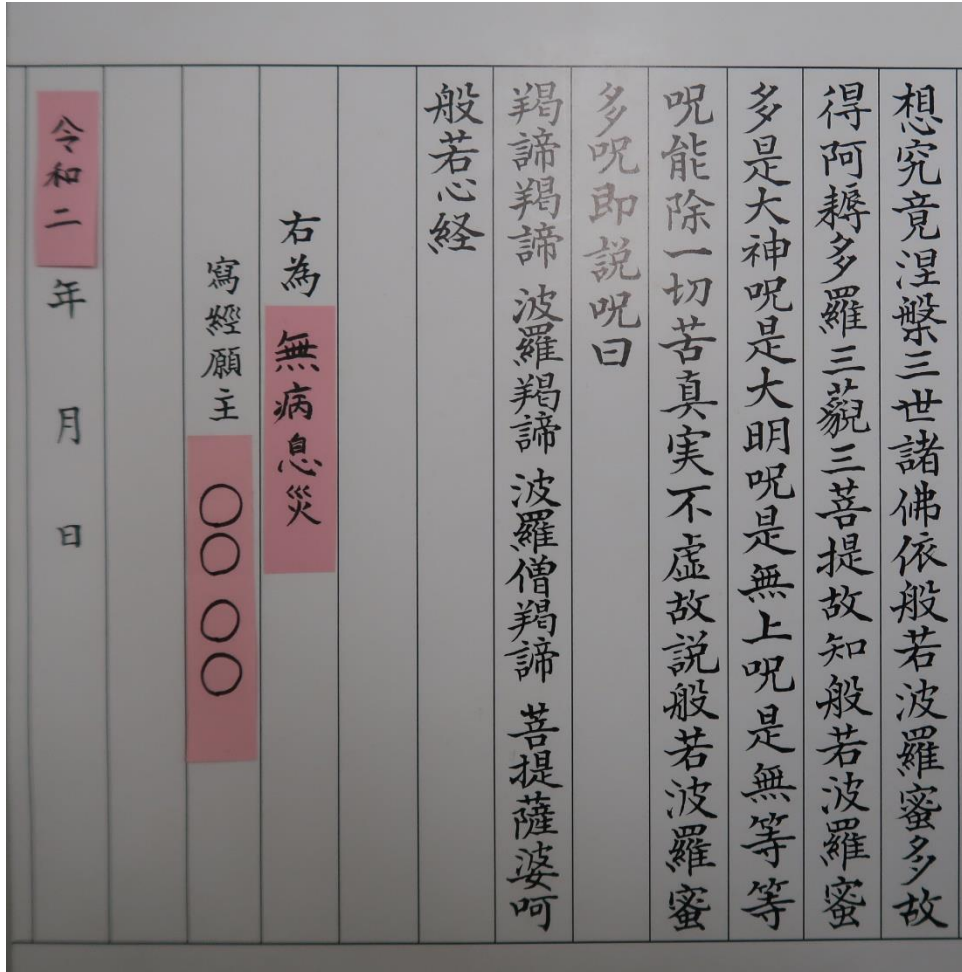 想究竟涅槃三世諸佛依般若波羅蜜多故
得阿耨多羅三藐三菩提故知般若波羅蜜
多是大神呪是大明呪是無上呪是無等等
呪能除一切苦真実不虚故説般若波羅蜜
多呪即説呪曰
羯諦羯諦 波羅羯諦 波羅僧羯諦 菩提薩婆呵
般若心経
右為 無病息災
寫經願主 〇〇 〇〇
令和二年 月 日